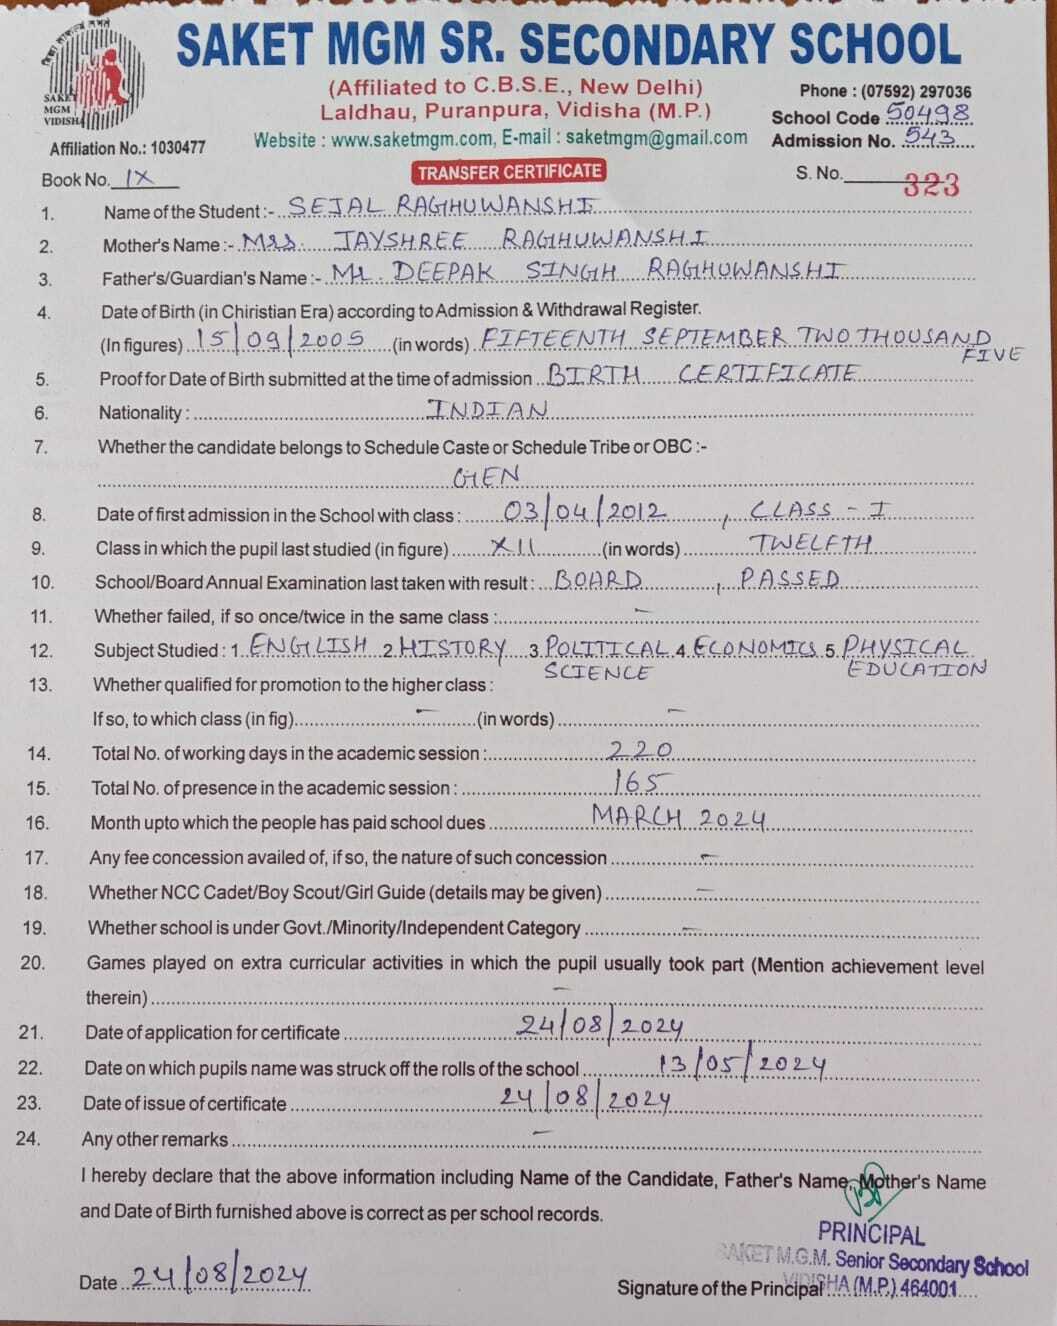 SAKET MGM SR. SECONDARY SCHOOL
(Affiliated to C.B.S.E., New Delhi)
Laldhau, Puranpura, Vidisha (M.P.)
Website : www.saketmgm.com, E-mail : saketmgm@gmail.com
Phone : (07592) 297036
School Code 50498
Admission No. 543
SAKET
MGM
VIDISHA
Affiliation No.: 1030477
Book No. IX
TRANSFER CERTIFICATE
S. No. 323
1. Name of the Student :- SEJAL RAGHUWANSHI
2. Mother's Name :- Mrs. JAYSHREE RAGHUWANSHI
3. Father's/Guardian's Name :- Mr. DEEPAK SINGH RAGHUWANSHI
4. Date of Birth (in Chiristian Era) according to Admission & Withdrawal Register.
(In figures) 15/09/2005 (in words) FIFTEENTH SEPTEMBER TWO THOUSAND
FIVE
5. Proof for Date of Birth submitted at the time of admission BIRTH CERTIFICATE
6. Nationality : INDIAN
7. Whether the candidate belongs to Schedule Caste or Schedule Tribe or OBC :-
GEN
8. Date of first admission in the School with class : 03/04/2012, CLASS - I
9. Class in which the pupil last studied (in figure) XII (in words) TWELFTH
10. School/Board Annual Examination last taken with result : BOARD, PASSED
11. Whether failed, if so once/twice in the same class : -
12. Subject Studied : 1. ENGLISH 2. HISTORY 3. POLITICAL 4. ECONOMICS 5. PHYSICAL
SCIENCE EDUCATION
13. Whether qualified for promotion to the higher class :
If so, to which class (in fig) - (in words) -
14. Total No. of working days in the academic session : 220
15. Total No. of presence in the academic session : 165
16. Month upto which the people has paid school dues MARCH 2024
17. Any fee concession availed of, if so, the nature of such concession -
18. Whether NCC Cadet/Boy Scout/Girl Guide (details may be given) -
19. Whether school is under Govt./Minority/Independent Category -
20. Games played on extra curricular activities in which the pupil usually took part (Mention achievement level
therein) -
21. Date of application for certificate 24/08/2024
22. Date on which pupils name was struck off the rolls of the school 13/05/2024
23. Date of issue of certificate 24/08/2024
24. Any other remarks -
I hereby declare that the above information including Name of the Candidate, Father's Name, Mother's Name
and Date of Birth furnished above is correct as per school records.
PRINCIPAL
SAKET M.G.M. Senior Secondary School
VIDISHA (M.P.) 464001
Date 24/08/2024
Signature of the Principal